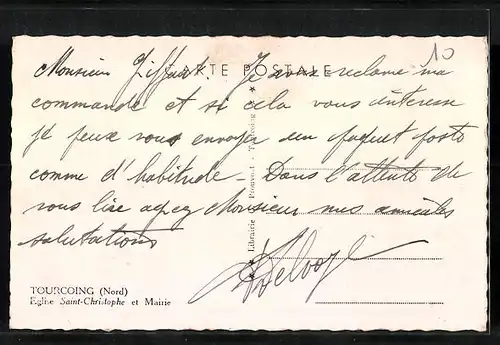 10
CARTE POSTALE
Monsieur Ziffart. Je vous reclame ma
commande et si cela vous interesse
je peux vous envoyer un paquet poste
comme d'habitude. Dans l'attente de
vous lire agrez Monsieur mes amicales
salutations
Delvoye
TOURCOING (Nord)
Eglise Saint-Christophe et Mairie
Librairie - Tourcoing